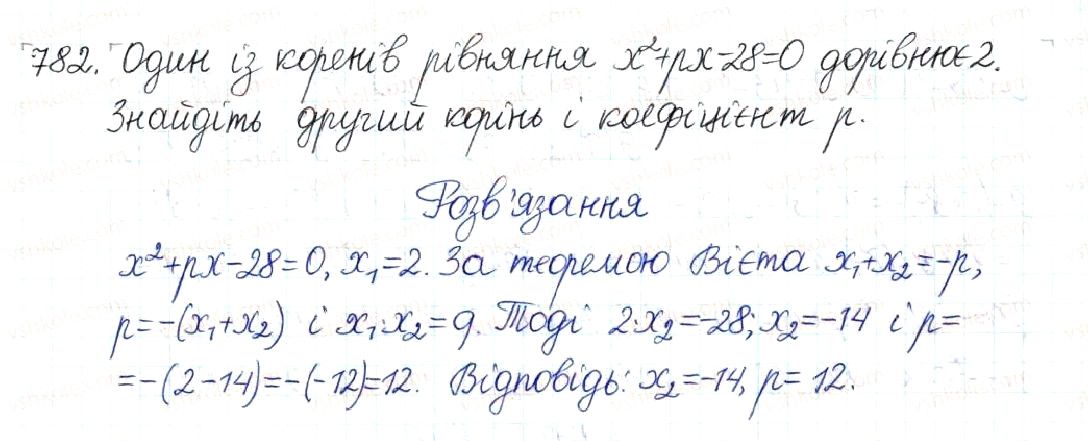 782. Один із коренів рівняння x²+px-28=0 дорівнює 2.
Знайдіть другий корінь і коефіцієнт p.
Розв'язання
x²+px-28=0, x₁=2. За теоремою Вієта x₁+x₂=-p,
p=-(x₁+x₂) і x₁·x₂=q. Тоді 2·x₂=-28; x₂=-14 і p=
=-(2-14)=-(-12)=12. Відповідь: x₂=-14, p=12.